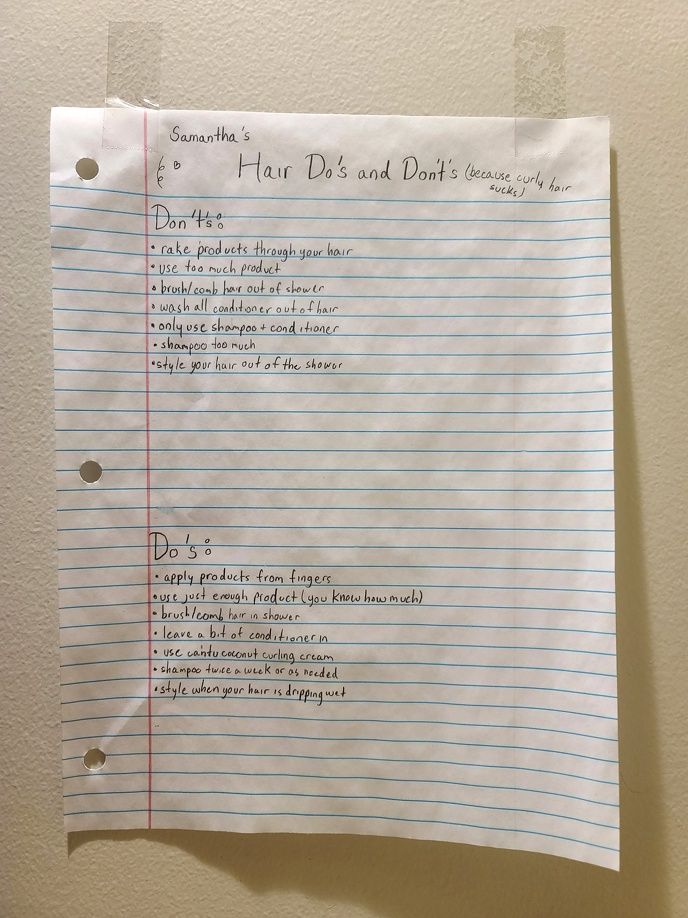 Samantha's
Hair Do's and Dont's (because curly hair
sucks)
Don't's:
• rake products through your hair
• use too much product
• brush/comb hair out of shower
• wash all conditioner out of hair
• only use shampoo + conditioner
• shampoo too much
• style your hair out of the shower
Do's:
• apply products from fingers
• use just enough product (you know how much)
• brush/comb hair in shower
• leave a bit of conditioner in
• use cantu coconut curling cream
• shampoo twice a week or as needed
• style when your hair is dripping wet